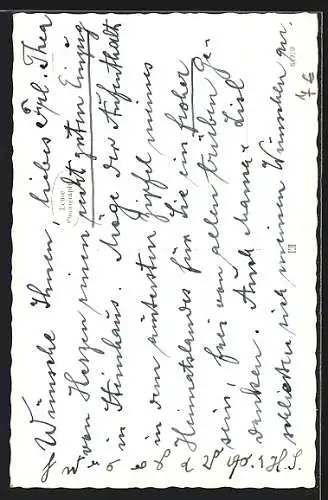 Wünsche Ihnen, liebes Frl. Thea
von Herzen einen guten Einzug
in Steinhaus. Möge der Aufenthalt
in dem äußersten Zipfel meines
Heimatlandes für Sie ein froher
sein, frei von allen trüben Ge-
danken. Auch Mama u. Lisl
schließen sich meinen Wünschen an.
Echte
Photographie